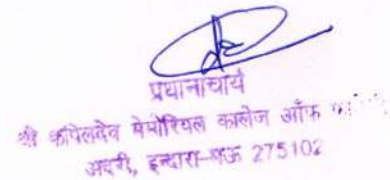 प्रधानाचार्य
श्री कपिलदेव मेमोरियल कालेज ऑफ
अदरी, इन्दारा-मऊ 275102